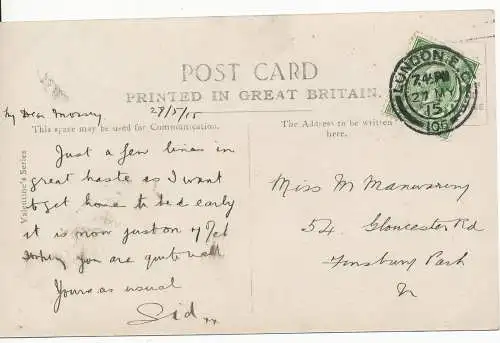 POST CARD
PRINTED IN GREAT BRITAIN.
My Dear Mossy 28/5/15
This space may be used for Communication.
The Address to be written
here.
Valentine's Series
Just a few lines in
great haste as I want
to get home to bed early
it is now just on 7 Oct
Hoping you are quite well
Yours as usual
Sid xx
Miss M Manwaring
54. Gloucester Rd
Finsbury Park
N
LONDON E.C.
27 MY
15
105